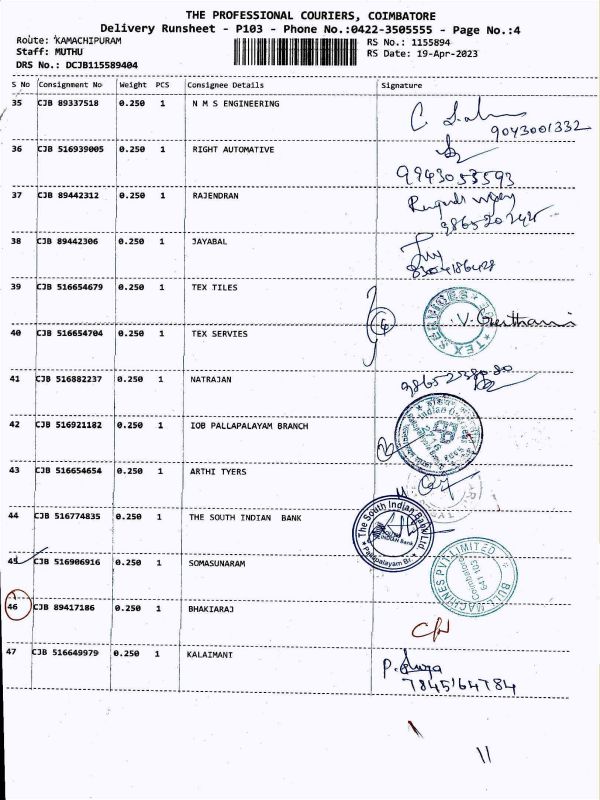 THE PROFESSIONAL COURIERS, COIMBATORE
Delivery Runsheet - P103 - Phone No.:0422-3505555 - Page No.:4
Route: KAMACHIPURAM RS No.: 1155894
Staff: MUTHU RS Date: 19-Apr-2023
DRS No.: DCJB115589404
S No Consignment No Weight PCS Consignee Details Signature
35 CJB 89337518 0.250 1 N M S ENGINEERING
9043001332
36 CJB 516939005 0.250 1 RIGHT AUTOMATIVE
9943053593
37 CJB 89442312 0.250 1 RAJENDRAN
38 CJB 89442306 0.250 1 JAYABAL
39 CJB 516654679 0.250 1 TEX TILES
TEX SERVICES
40 CJB 516654704 0.250 1 TEX SERVIES
41 CJB 516882237 0.250 1 NATRAJAN
42 CJB 516921182 0.250 1 IOB PALLAPALAYAM BRANCH
Indian Overseas
43 CJB 516654654 0.250 1 ARTHI TYERS
44 CJB 516774835 0.250 1 THE SOUTH INDIAN BANK
The South Indian Bank Ltd.
Pallapalayam Br.
45 CJB 516906916 0.250 1 SOMASUNARAM
BULL MACHINES PVT LIMITED
Coimbatore
641 103
46 CJB 89417186 0.250 1 BHAKIARAJ
47 CJB 516649979 0.250 1 KALAIMANI
7845164784